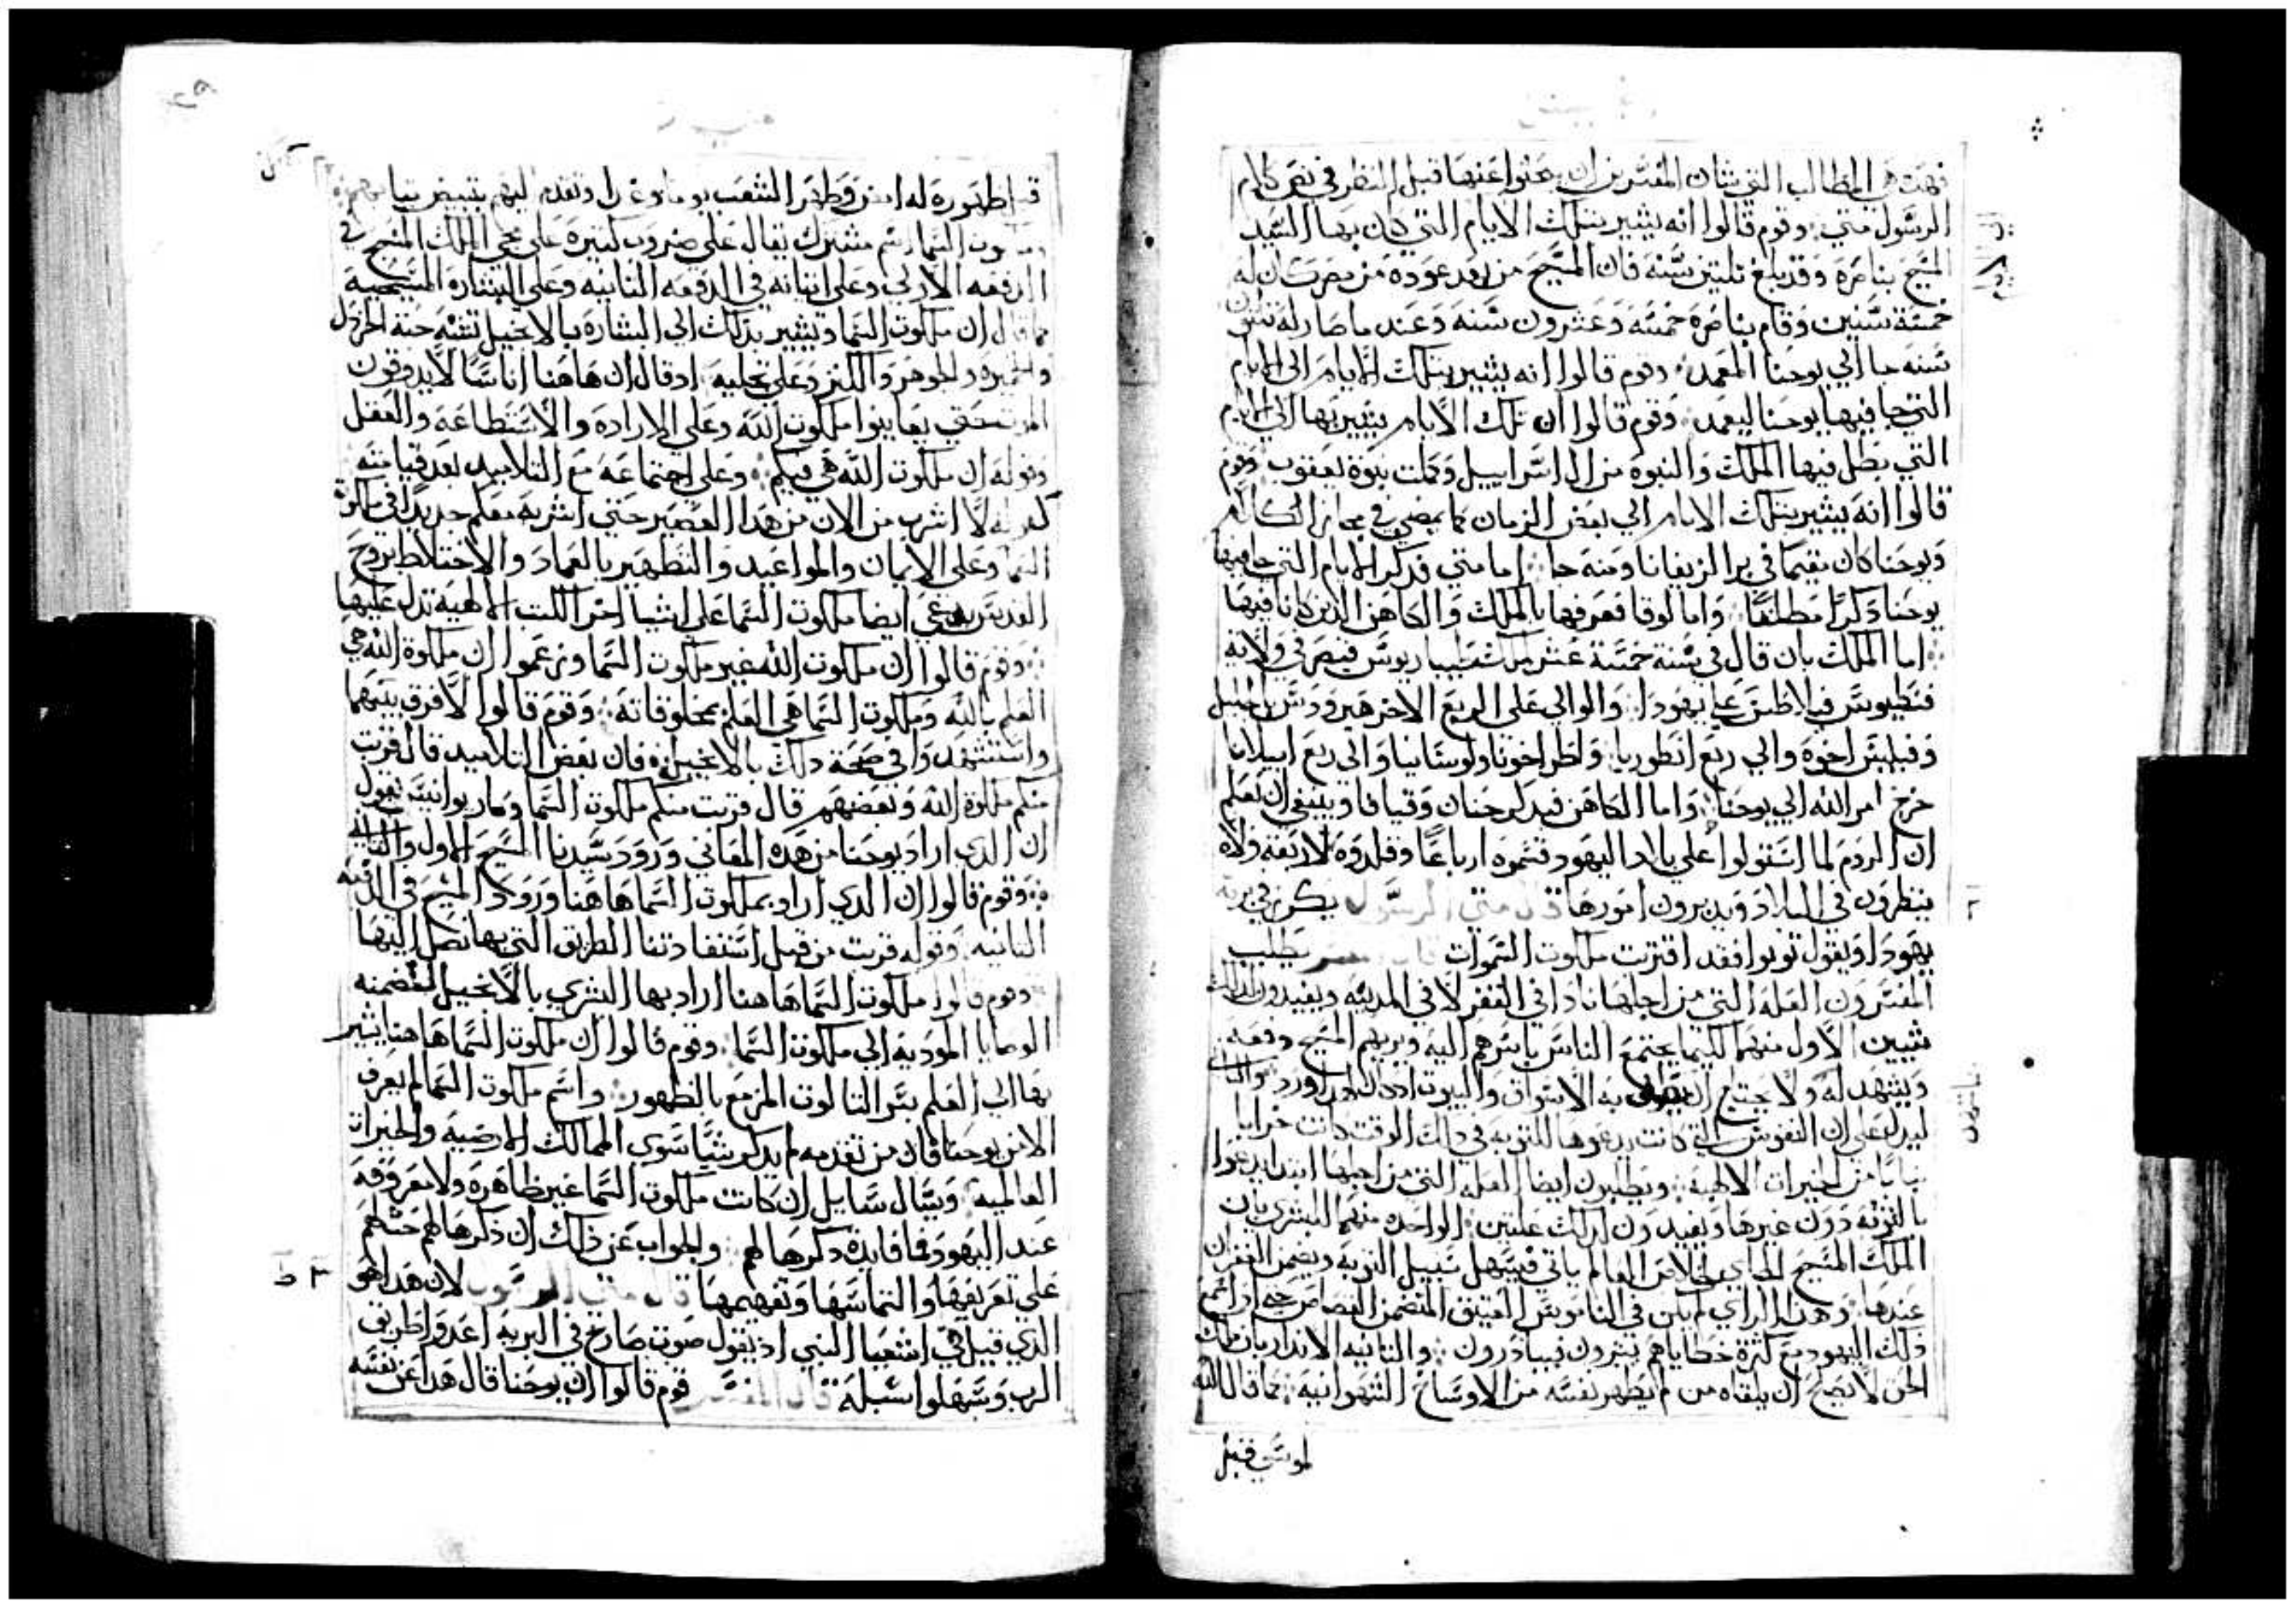 فهده هي المطالب التي شان المفسرين ان يبحثوا عنها قبل النظر في نص كلام
الرسول متي وقوم قالوا انه يشير بتلك الايام التي كان بها السيد
المسيح بناصرة وقد بلغ تلتين سنه فان المسيح من بعد عودة من مصر كان له
خمسة سنين وقام بناصرة خمسه وعشرون سنه وعند ما صار له تلتون
سنه جا الي يوحنا المعمد وقوم قالوا انه يشير بتلك الايام الي الايام
التي جا فيها يوحنا ليعمد وقوم قالوا ان تلك الايام يشير بها الي الايام
التي بطل فيها الملك والنبوة من ال اسراييل وكملت نبوة يعقوب وقوم
قالوا انه يشير بتلك الايام الي بعض الزمان كما يمضي في مجاز الكلام
ويوحنا كان مقيما في برا الزيفانا ومنه جا اما متي فدكر الايام التي جا فيها
يوحنا دكرا مطلقا واما لوقا فعرفها بالملك والكاهن الدين كانا فيها
اما الملك بان قال في سنة خمسة عشر من ملك طيباريوس قيصر في ولاية
فنطيوس فيلاطس علي يهودا والوالي علي الربع الاخر هيرودس الجليل
وفيلبس اخوه والي ربع انطوريا واطراخونا ولوسانيا والي ربع ابيلانا
خرج امر الله الي يوحنا واما الكاهن فبدكر حنان وقيافا وينبغي ان تعلم
ان الروم لما استولوا علي بلاد اليهود قسموه ارباعا وقلدوه لاربعة ولاه
ينظرون في البلاد ويدبرون امورها قال متي الرسول يكرز في برية
يهودا ويقول توبوا فقد اقتربت ملكوت السموات قال المفسر يطلب
المفسرون العله التي من اجلها نادا في القفر لا في المدينه ويفيدون لدلك
شيين الاول منهما لكيما يجتمع الناس باسرهم اليه ويريهم المسيح دفعه
ويشهد له ولا يحتاج ان يطوف به الاسواق والبيوت والتاني
ليدل علي ان النفوس التي كانت يدعوها للتوبه في دلك الوقت كانت خرابا
يبابا من الخيرات الالهية ويطلبون ايضا العله التي من اجلها ابتدا يدعوا
بالتوبه دون غيرها ويفيدون لدلك علتين الواحده منهما البشري بان
الملك المسيح الجاي لخلاص العالم ياتي فيسهل سبيل التوبه ويضمن الغفران
عندها وهدا الراي لم يكن في الناموس العتيق المتضمن القصاص
دلك اليهود مع كثرة خطاياهم والتانيه الاندار بان ملك
الحق لا يصلح ان يلقاه من لم يطهر نفسه من الاوساخ الشهوانيه كما قال الله
لموسي قبل
اطهوره له امض وطهر الشعب يوما وغدا وتقدم اليهم بتبيض تيابهم
السما اسم مشترك يقال علي ضروب كتيره علي مجي الملك المسيح في
الدفعه الاولي وعلي اتيانه في الدفعه التانيه وعلي البشاره المسيحية
كما قال ان ملكوت السما ويشير بدلك الي البشارة بالانجيل تشبه حبة الخردل
والخميره والجوهر والكنز وعلي تجليه ادقال ان هاهنا اناسا لا يدوقون
الموت حتي يعاينوا ملكوت الله وعلي الارادة والاستطاعة والعقل
وقوله ان ملكوت الله هي فيكم وعلي اجتماعه مع التلاميد بعد قيامته
كقوله لا اشرب من الان من هدا العصير حتي اشربه معكم جديدا في ملكوة
السما وعلي الايمان والمواعيد والتطهير بالعماد والاختلاط بروح
القدس ايضا ملكوت السما علي اشيا اخر الكتب الالهية تدل عليها
وقوم قالوا ان ملكوت الله غير ملكوت السما وزعموا ان ملكوة الله هي
العلم بالله وملكوت السما هي العلم بمخلوقاته وقوم قالوا لا فرق بينهما
واستشهدوا في صحة دلك بالانجيل فان بعض التلاميد قال قربت
منكم ملكوة الله وبعضهم قال قربت منكم ملكوت السما ومار يوانيس يقول
ان الدي اراد يوحنا من هده المعاني ورود سيدنا المسيح الاول والتاني
وقوم قالوا ان الدي اراد بملكوت السما هاهنا ورود المسيح في الدفعه
التانيه وقوله قربت من قبل استفادتنا الطريق التي بها نصل اليها
وقوم قالوا ملكوت السما هاهنا اراد بها البشري بالانجيل المتضمنه
الوصايا المودية الي ملكوت السما وقوم قالوا ان ملكوت السما هاهنا يشير
بها الي العلم بسر التالوت المزمع بالظهور واسم ملكوت السما لم يعرف
الا من يوحنا فان من تقدمه لم يدكر شيا سوي الممالك الارضيه والخيرات
العالميه ويسال سايل ان كانت ملكوت السما غير ظاهرة ولا معروفه
عند اليهود فما فايدة دكرها لهم والجواب عن ذلك ان ذكرها لهم حثهم
علي تعريفها والتماسها وتفهيمها قال متي الرسول لان هدا هو
الدي قيل في اشعيا النبي اذ يقول صوت صارخ في البرية اعدوا طريق
الرب وسهلوا سبله قال المفسر قوم قالوا ان يوحنا قال هدا عن نفسه